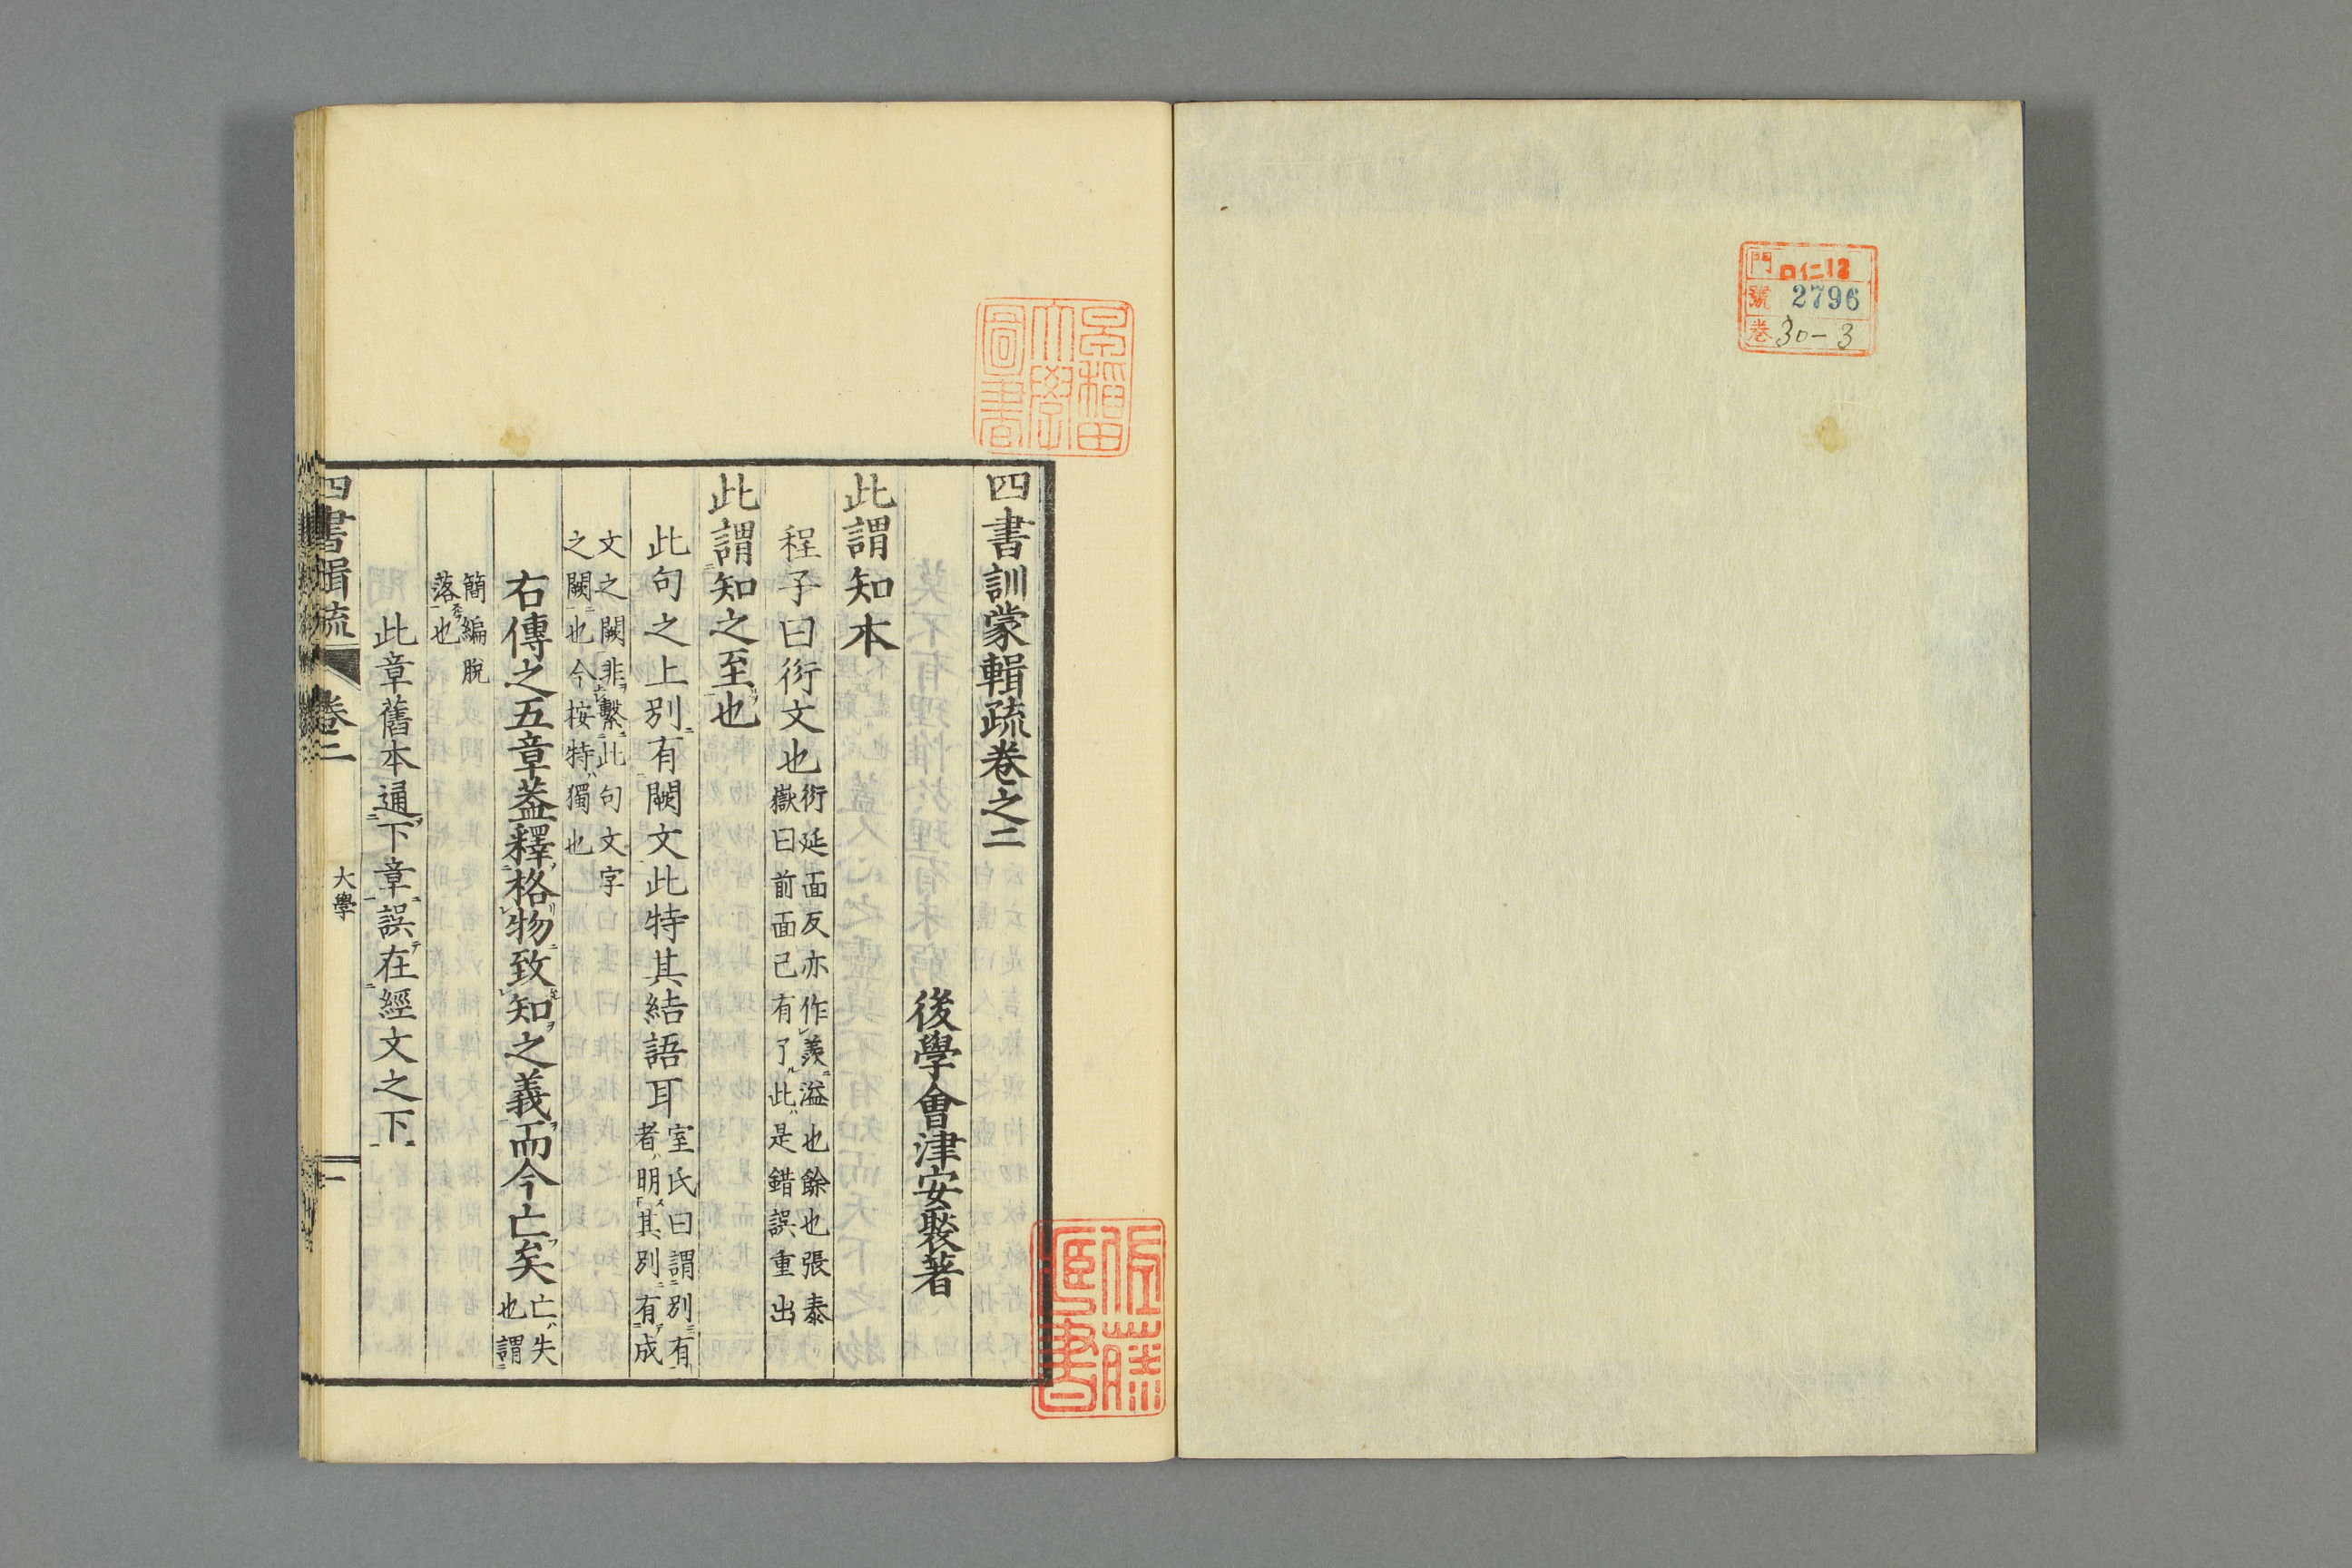 門 ロ仁12
號 2796
卷 30-3
早稻田
大學
圖書
四書訓蒙輯疏卷之二
後學會津安褧著
此謂知本
程子曰衍文也衍延面反亦作羨溢也餘也張泰
嶽曰前面已有了此是錯誤重出
此謂知之至也
此句之上別有闕文此特其結語耳室氏曰謂別有
者明其別有成
文之闕非繫此句文字
之闕也今按特獨也
右傳之五章蓋釋格物致知之義而今亡矣亡失
也謂
簡編脫
落也
此章舊本通下章誤在經文之下
四書輯疏 卷二 大學 一
佐藤
書